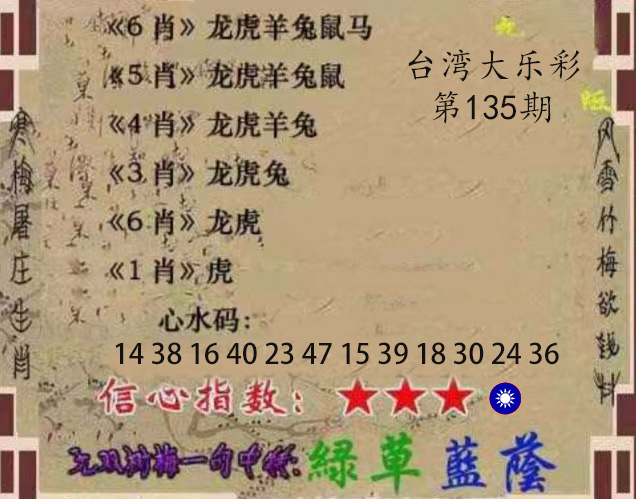 《6 肖》龙虎羊兔鼠马
《5 肖》龙虎羊兔鼠
《4 肖》龙虎羊兔
《3 肖》龙虎兔
《6 肖》龙虎
《1 肖》虎
心水码:
14 38 16 40 23 47 15 39 18 30 24 36
信心指数: ★★★
台湾大乐彩
第135期
寒梅屠庄生肖
风雪竹梅欲
一句中特:綠草藍蔭